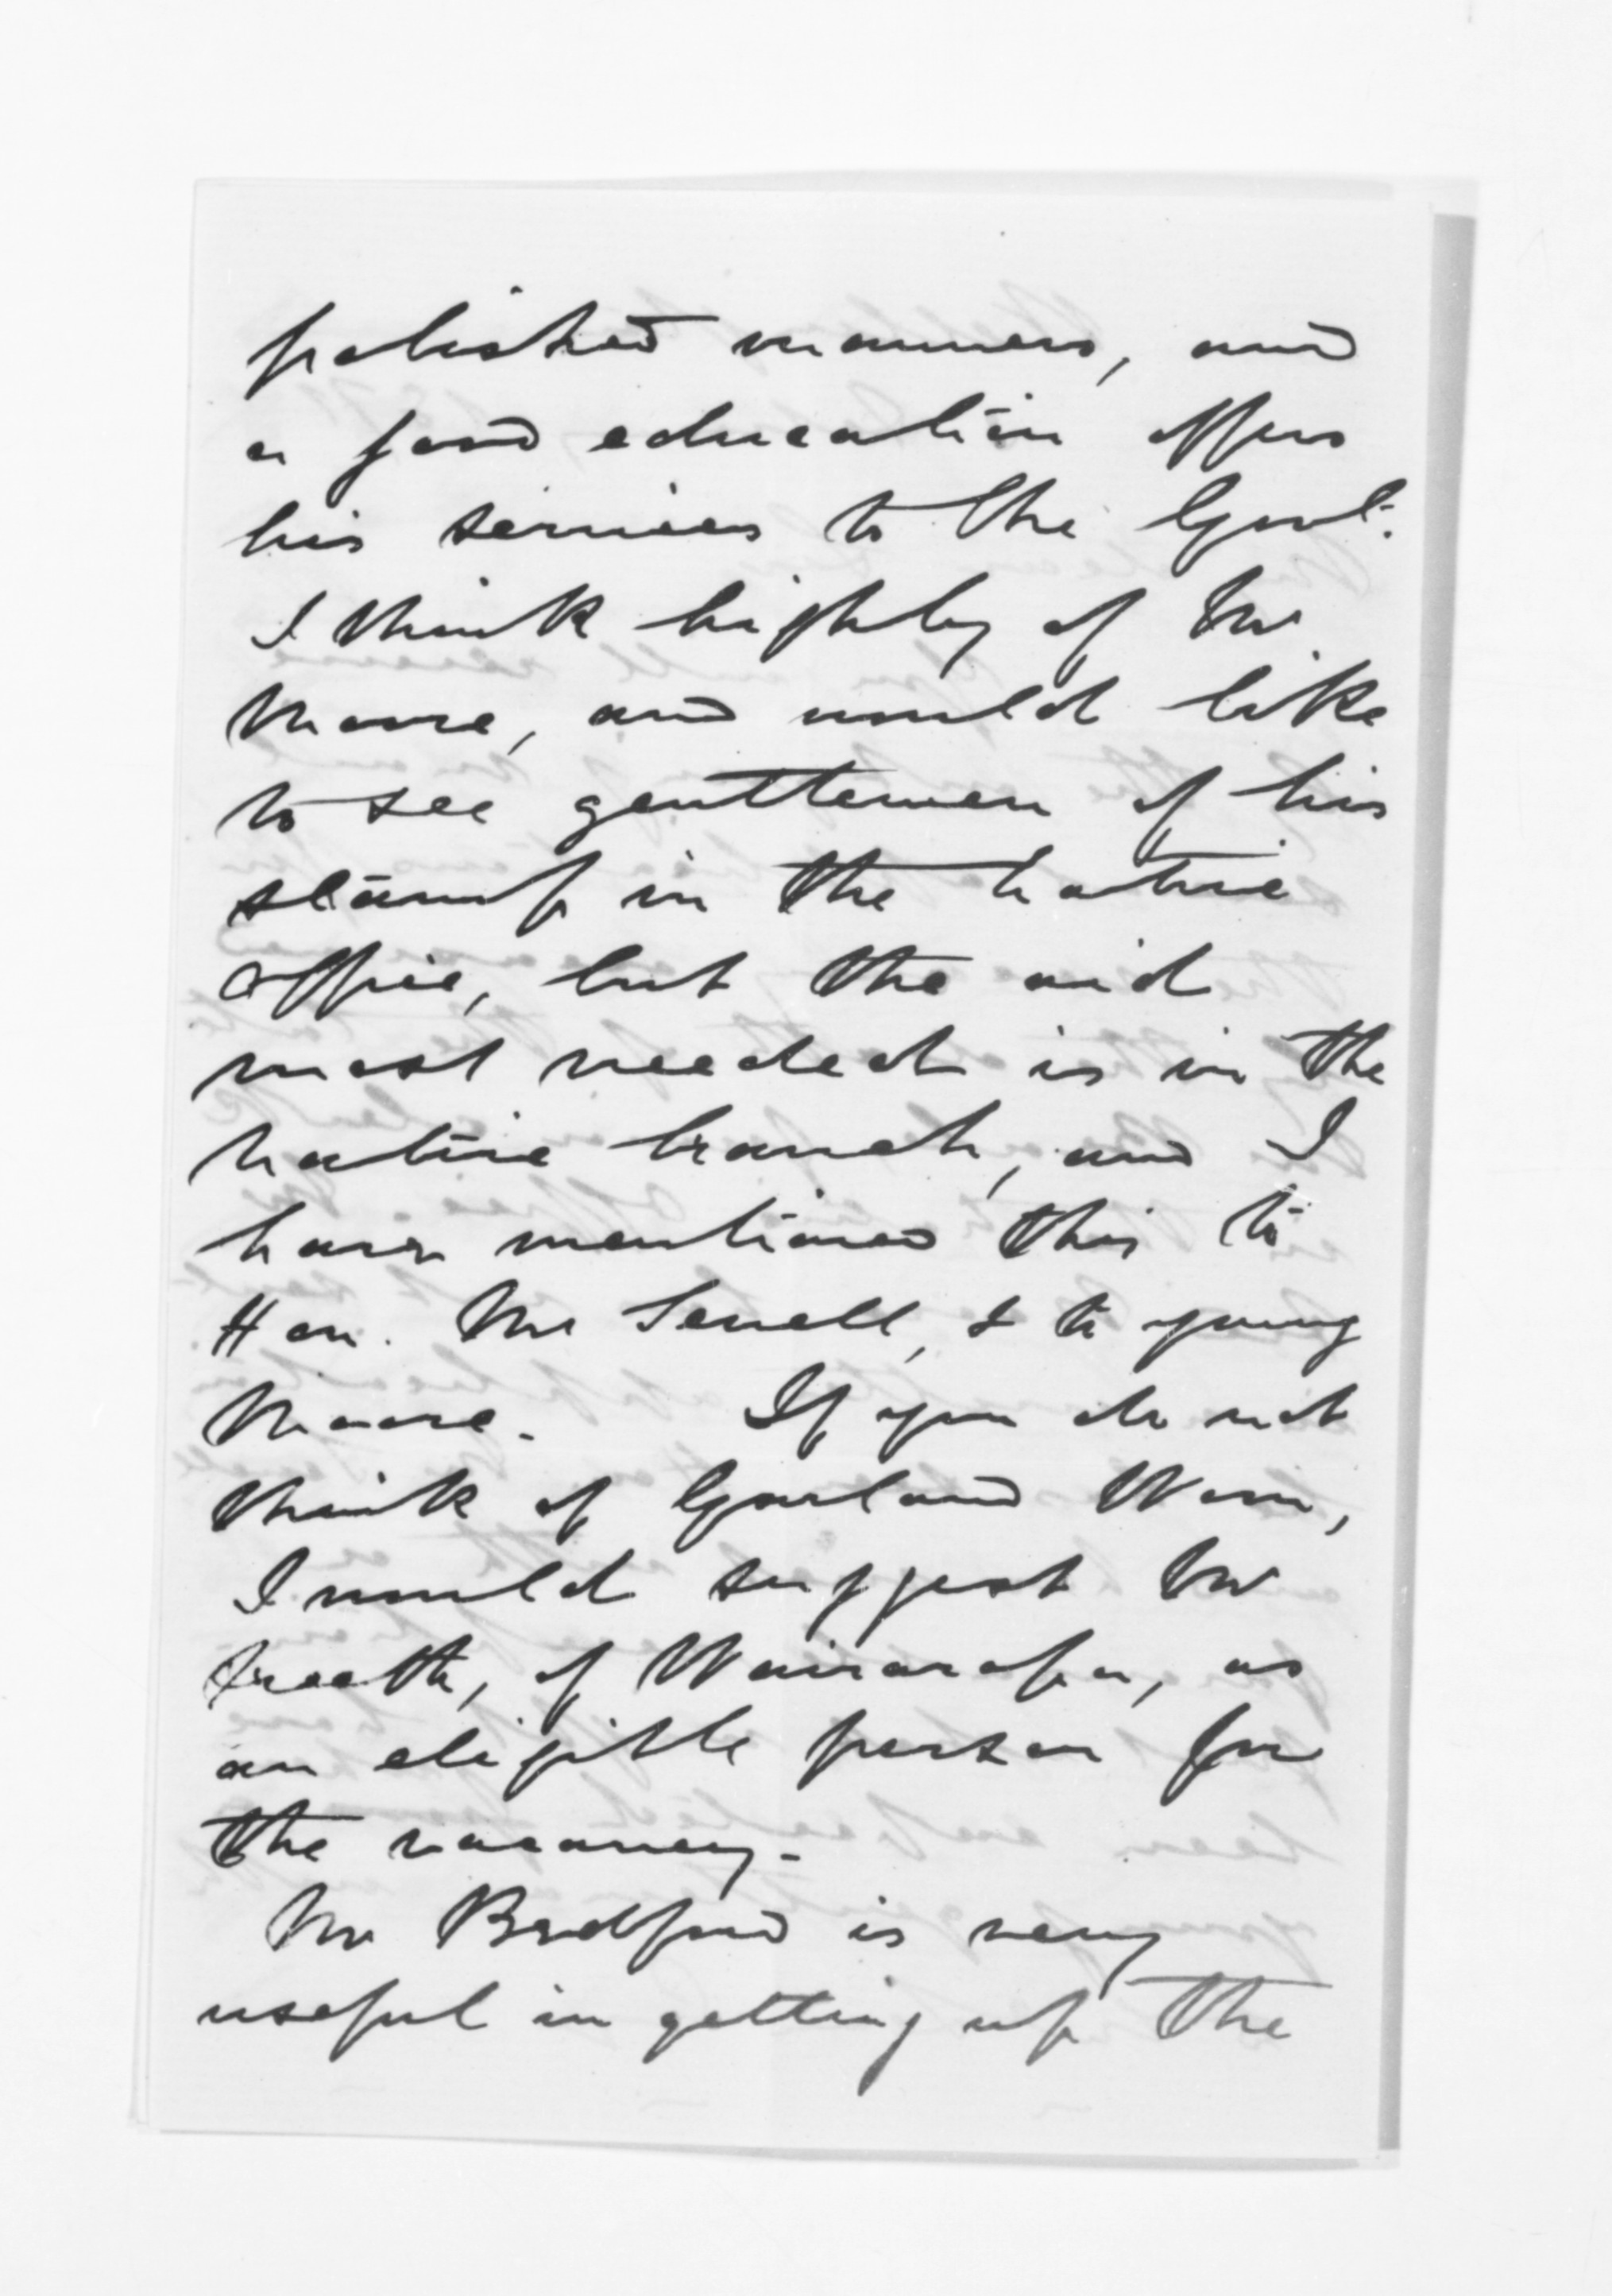 polished manners, and
a good education offers
his services to the Govt.
I think highly of Mr
Moore, and would like
to see gentlemen of his
stamp in the native
office, but the aid
most needed is in the
native branch, and I
have mentioned this to
Hon. Mr Sewell, & to young
Moore. If you do not
think of Garland Wm,
I would suggest Mr
Freeth, of Wairarapa, as
an eligible person for
the vacancy.
Mr Bradford is very
useful in getting up the